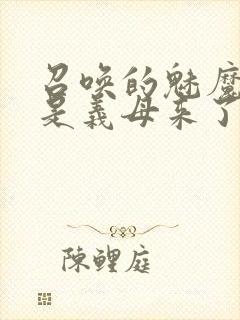 召唤的魅魔
是義母来了
陳鲤庭